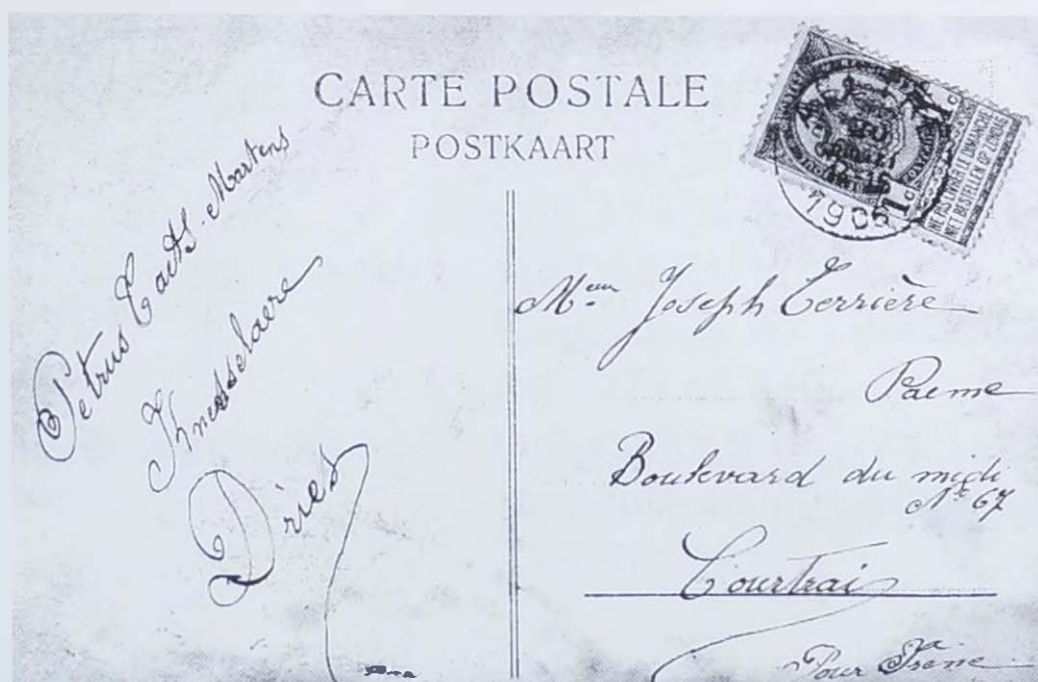 CARTE POSTALE
POSTKAART
NE PAS LIVRER LE DIMANCHE
NIET BESTELLEN OP ZONDAG
1906
Petrus Taets-Martens
Knesselaere
Dries
Joseph Terrière
Boulevard du midi
N° 67
Courtrai
Pour Irène